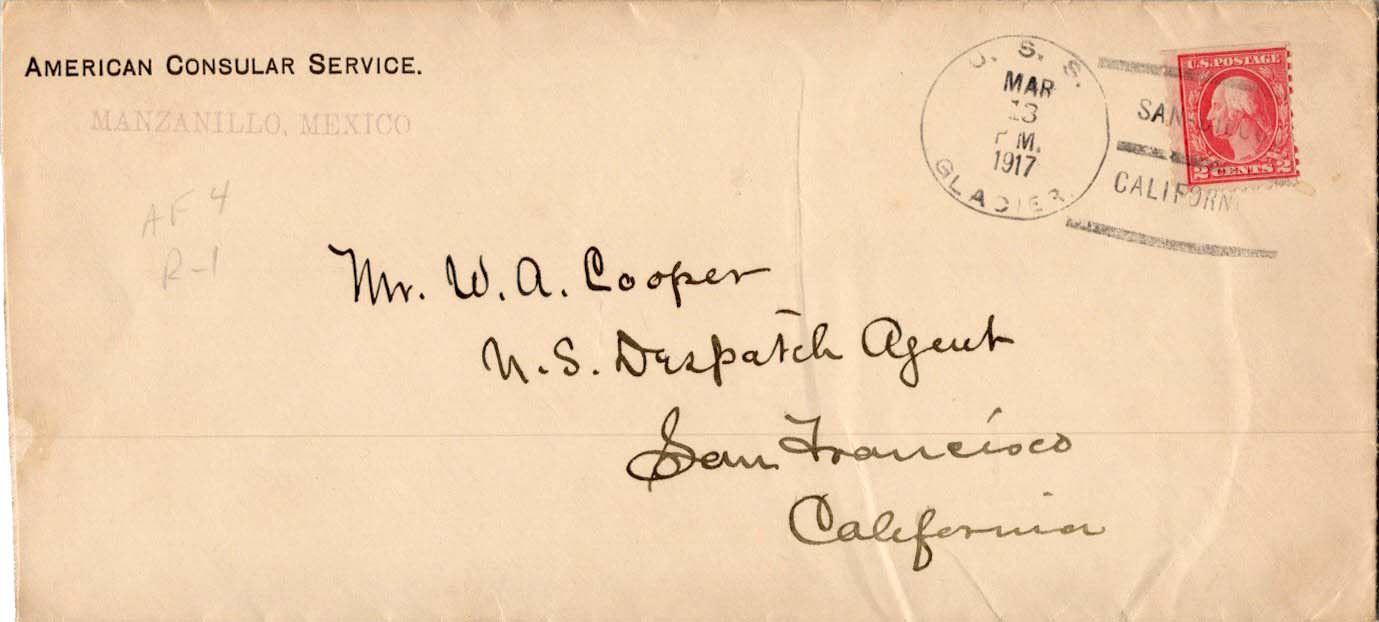 AMERICAN CONSULAR SERVICE.
MANZANILLO, MEXICO
AF 4
R-1
U. S. S.
MAR
13
P M.
1917
GLACIER.
SAN
CALIFORN
U.S. POSTAGE
2 CENTS 2
Mr. W. A. Cooper
U. S. Despatch Agent
San Francisco
California